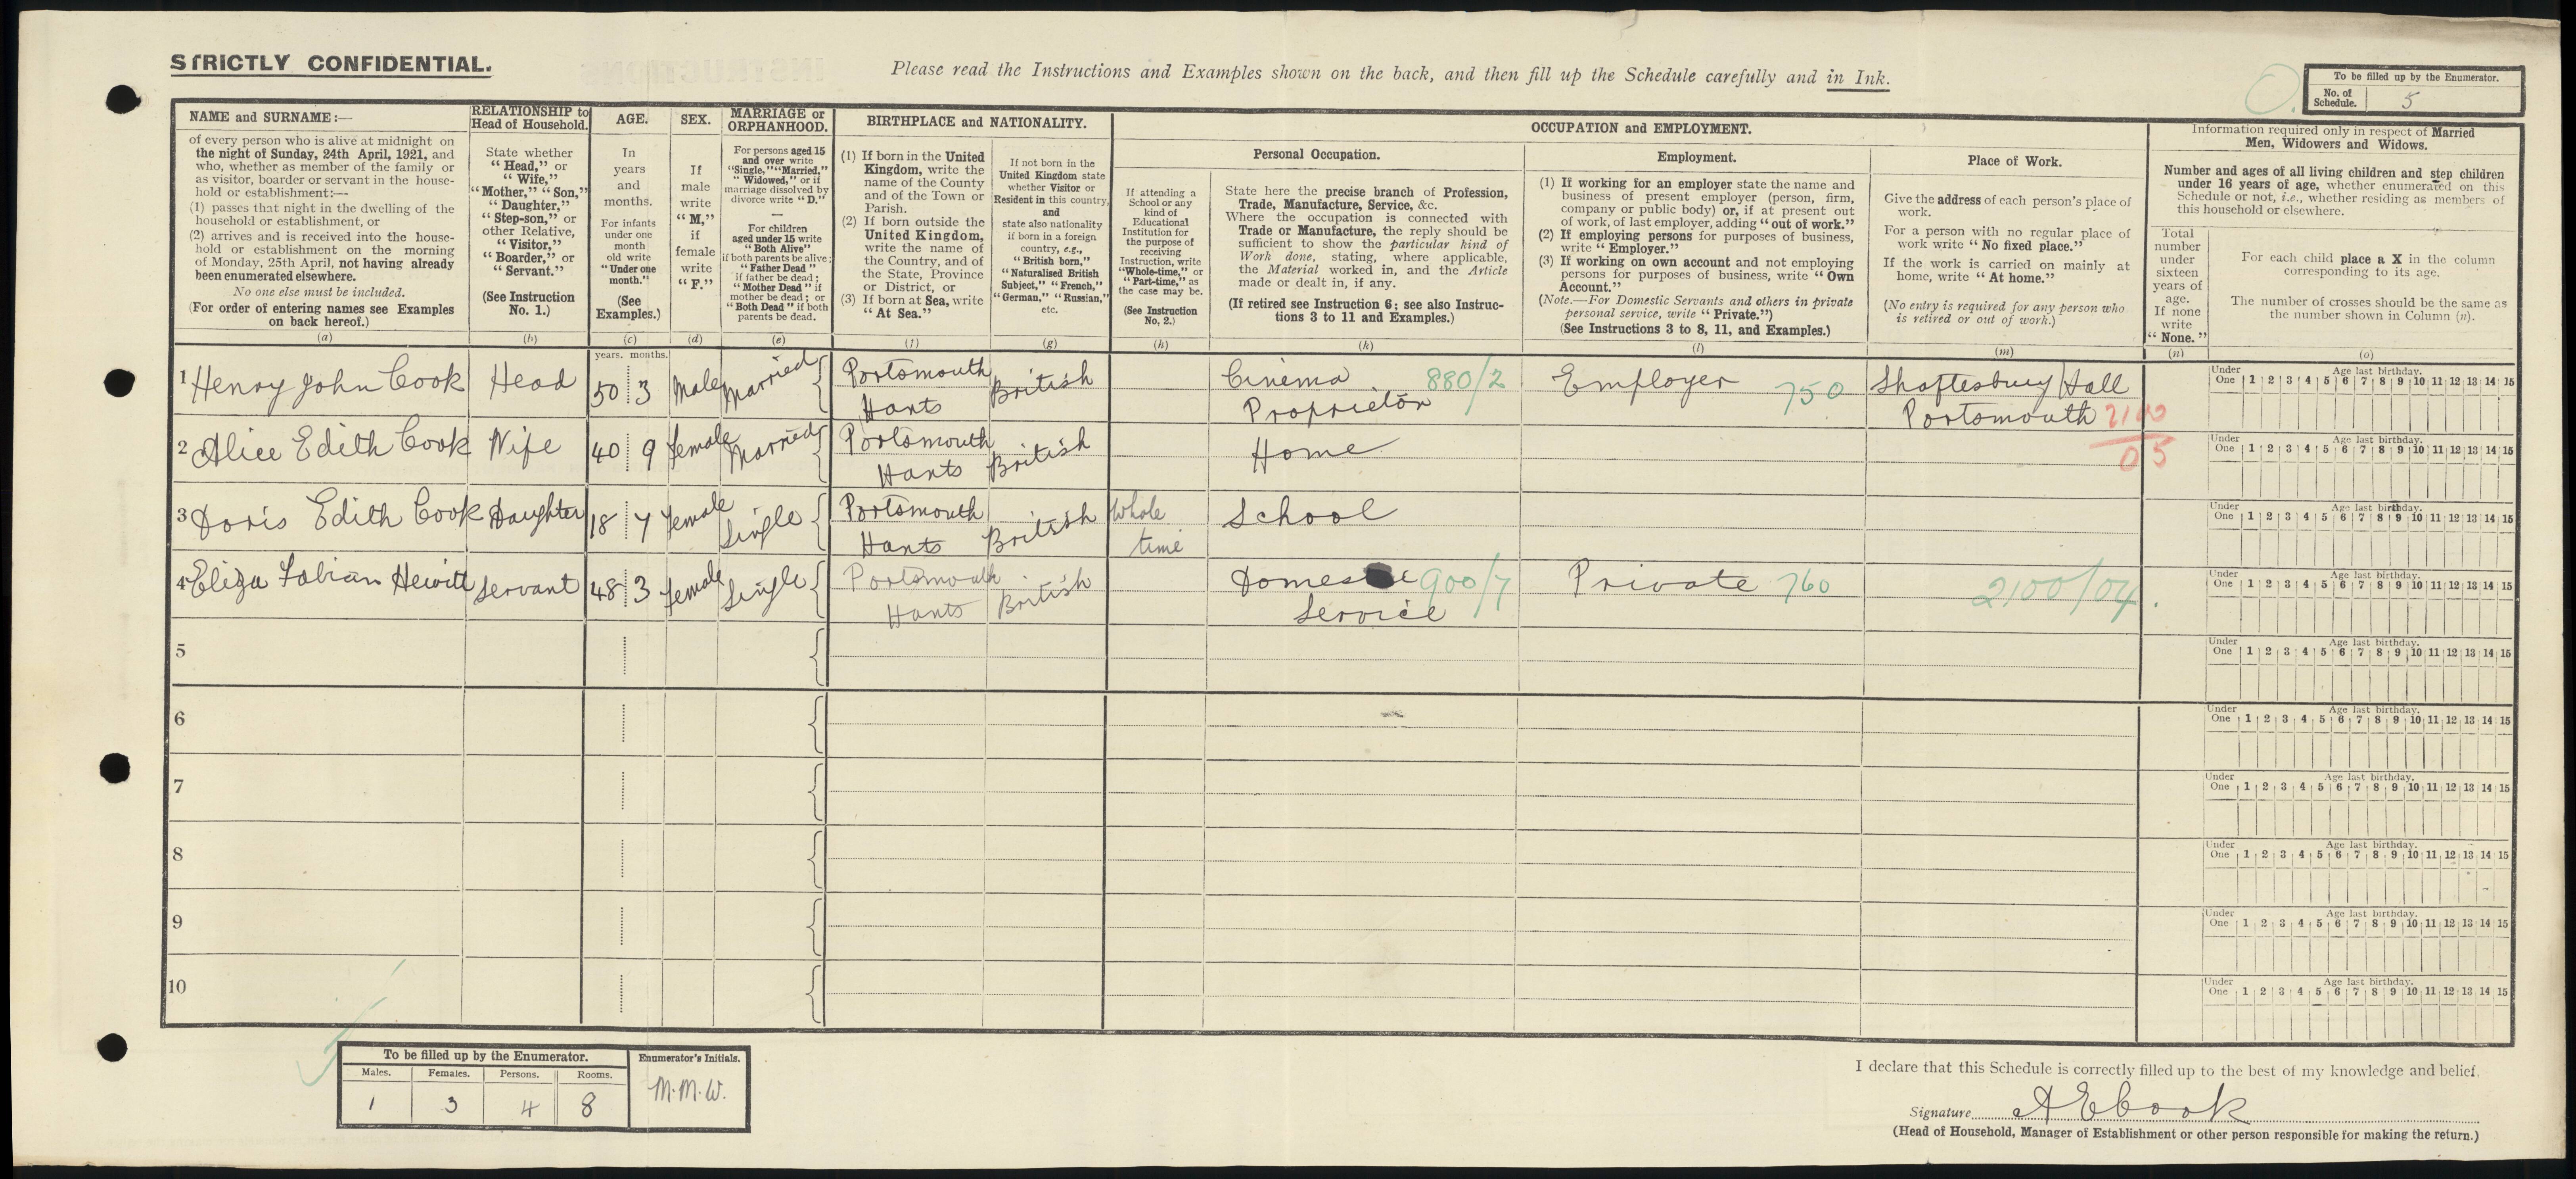 STRICTLY CONFIDENTIAL.
Please read the Instructions and Examples shown on the back, and then fill up the Schedule carefully and in Ink.
To be filled up by the Enumerator.
No. of Schedule. 5
NAME and SURNAME:—
of every person who is alive at midnight on
the night of Sunday, 24th April, 1921, and
who, whether as member of the family or
as visitor, boarder or servant in the house-
hold or establishment:—
(1) passes that night in the dwelling of the
household or establishment, or
(2) arrives and is received into the house-
hold or establishment on the morning
of Monday, 25th April, not having already
been enumerated elsewhere.
No one else must be included.
(For order of entering names see Examples
on back hereof.)
(a)
RELATIONSHIP to
Head of Household.
State whether
"Head," or
"Wife,"
"Mother," "Son,"
"Daughter,"
"Step-son," or
other Relative,
"Visitor,"
"Boarder," or
"Servant."
(See Instruction
No. 1.)
(b)
AGE.
In
years
and
months.
For infants
under one
month
old write
"Under one
month."
(See
Examples.)
(c)
SEX.
If
male
write
"M,"
if
female
write
"F."
(d)
MARRIAGE or
ORPHANHOOD.
For persons aged 15
and over write
"Single," "Married,"
"Widowed," or if
marriage dissolved by
divorce write "D."
—
For children
aged under 15 write
"Both Alive"
if both parents be alive;
"Father Dead"
if father be dead;
"Mother Dead" if
mother be dead; or
"Both Dead" if both
parents be dead.
(e)
BIRTHPLACE and NATIONALITY.
(1) If born in the United
Kingdom, write the
name of the County
and of the Town or
Parish.
(2) If born outside the
United Kingdom,
write the name of
the Country, and of
the State, Province
or District, or
(3) If born at Sea, write
"At Sea."
(f)
If not born in the
United Kingdom state
whether Visitor or
Resident in this country,
and
state also nationality
if born in a foreign
country, e.g.,
"British born,"
"Naturalised British
Subject," "French,"
"German," "Russian,"
etc.
(g)
OCCUPATION and EMPLOYMENT.
If attending a
School or any
kind of
Educational
Institution for
the purpose of
receiving
Instruction, write
"Whole-time," or
"Part-time," as
the case may be.
(See Instruction
No. 2.)
(h)
Personal Occupation.
State here the precise branch of Profession,
Trade, Manufacture, Service, &c.
Where the occupation is connected with
Trade or Manufacture, the reply should be
sufficient to show the particular kind of
Work done, stating, where applicable,
the Material worked in, and the Article
made or dealt in, if any.
(If retired see Instruction 6; see also Instruc-
tions 3 to 11 and Examples.)
(k)
Employment.
(1) If working for an employer state the name and
business of present employer (person, firm,
company or public body) or, if at present out
of work, of last employer, adding "out of work."
(2) If employing persons for purposes of business,
write "Employer."
(3) If working on own account and not employing
persons for purposes of business, write "Own
Account."
(Note.—For Domestic Servants and others in private
personal service, write "Private.")
(See Instructions 3 to 8, 11, and Examples.)
(l)
Place of Work.
Give the address of each person's place of
work.
For a person with no regular place of
work write "No fixed place."
If the work is carried on mainly at
home, write "At home."
(No entry is required for any person who
is retired or out of work.)
(m)
Information required only in respect of Married
Men, Widowers and Widows.
Number and ages of all living children and step children
under 16 years of age, whether enumerated on this
Schedule or not, i.e., whether residing as members of
this household or elsewhere.
Total
number
under
sixteen
years of
age.
If none
write
"None."
(n)
For each child place a X in the column
corresponding to its age.
The number of crosses should be the same as
the number shown in Column (n).
(o)
years. months.
1 Henry John Cook Head 50 3 Male Married Portsmouth Hants British Cinema Proprietor 880/2 Employer 750 Shaftesbury Hall Portsmouth 2100
05
Under One Age last birthday. 1 2 3 4 5 6 7 8 9 10 11 12 13 14 15
2 Alice Edith Cook Wife 40 9 Female Married Portsmouth Hants British Home
Under One Age last birthday. 1 2 3 4 5 6 7 8 9 10 11 12 13 14 15
3 Doris Edith Cook Daughter 18 7 Female Single Portsmouth Hants British Whole time School
Under One Age last birthday. 1 2 3 4 5 6 7 8 9 10 11 12 13 14 15
4 Eliza Fabian Hewitt Servant 48 3 Female Single Portsmouth Hants British Service 900/7 Private 760 2100/04
Under One Age last birthday. 1 2 3 4 5 6 7 8 9 10 11 12 13 14 15
5
Under One Age last birthday. 1 2 3 4 5 6 7 8 9 10 11 12 13 14 15
6
Under One Age last birthday. 1 2 3 4 5 6 7 8 9 10 11 12 13 14 15
7
Under One Age last birthday. 1 2 3 4 5 6 7 8 9 10 11 12 13 14 15
8
Under One Age last birthday. 1 2 3 4 5 6 7 8 9 10 11 12 13 14 15
9
Under One Age last birthday. 1 2 3 4 5 6 7 8 9 10 11 12 13 14 15
10
Under One Age last birthday. 1 2 3 4 5 6 7 8 9 10 11 12 13 14 15
To be filled up by the Enumerator.
Males. Females. Persons. Rooms.
1 3 4 8
Enumerator's Initials.
M.M.W.
I declare that this Schedule is correctly filled up to the best of my knowledge and belief.
Signature A E Cook
(Head of Household, Manager of Establishment or other person responsible for making the return.)